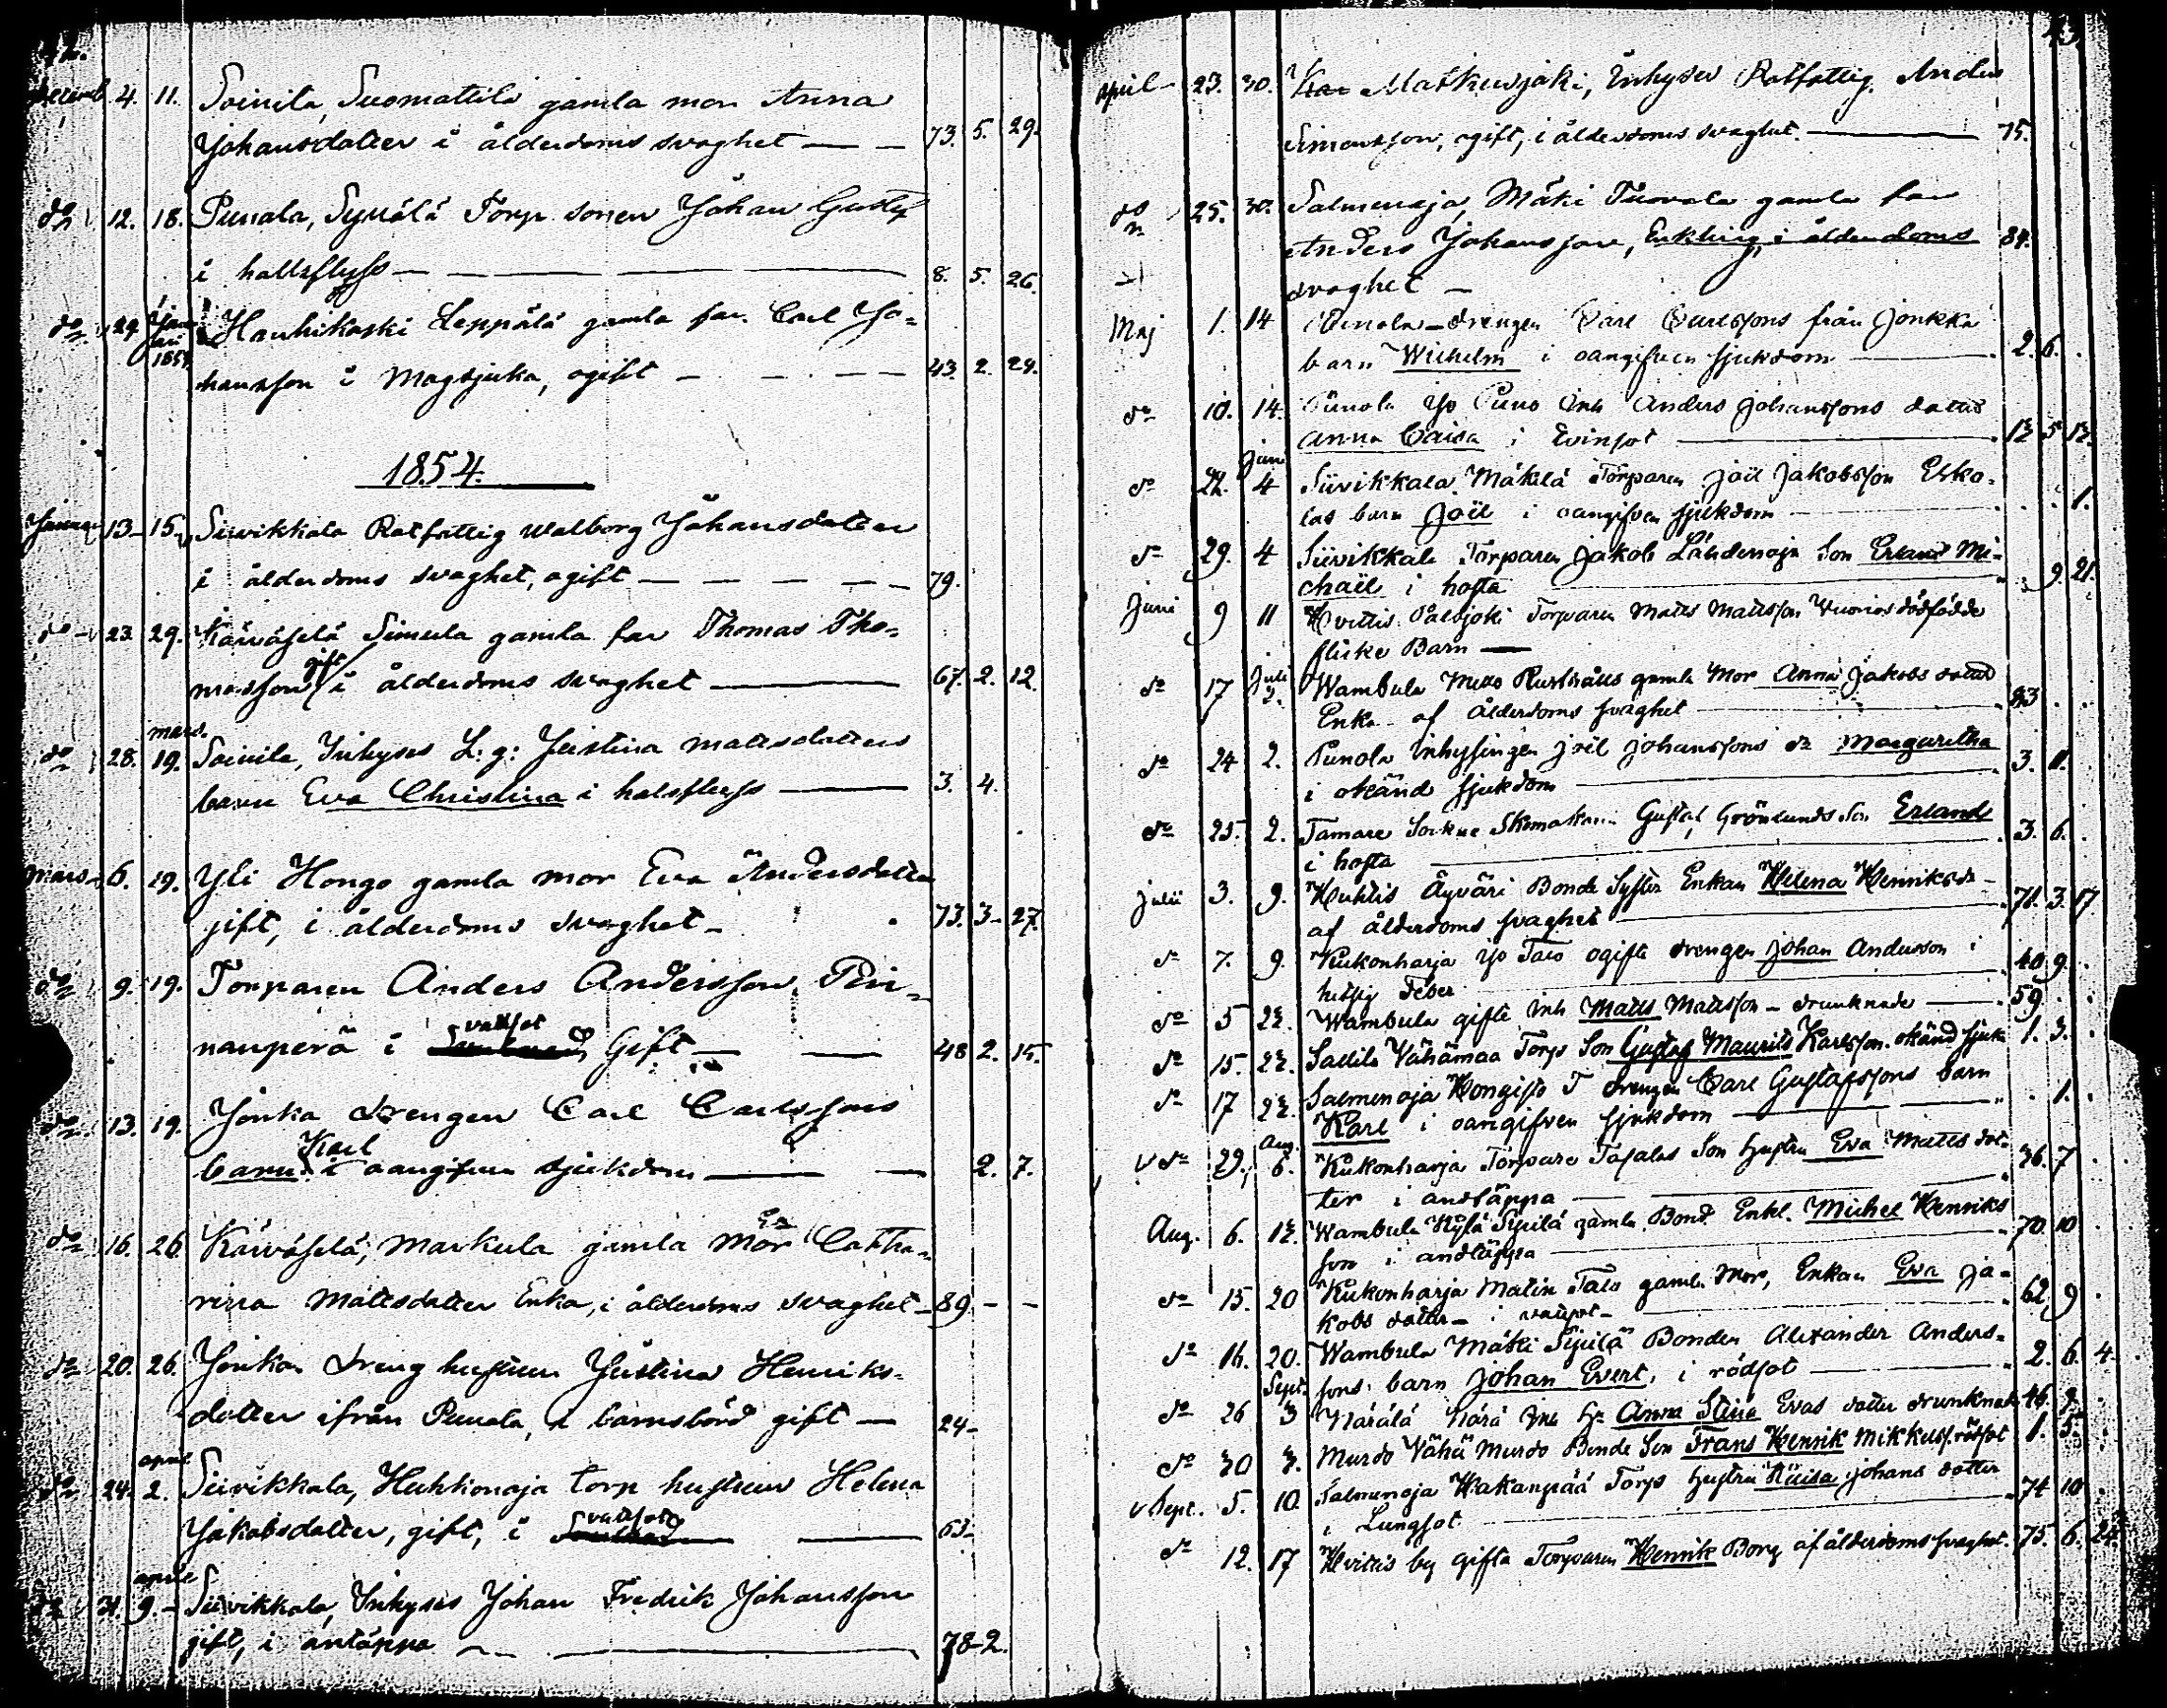 4. 11. Soinila, Suomattila gamla mor Anna
Johansdotter i ålderdoms svaghet — — 73. 5. 29.
do 12. 18. Punala, Syrjälä Torp. sonen Johan Gustaf
i halsflyss — — — 8. 5. 26.
do 29. Hauhikoski Leppälä gamla far Carl Jo-
1854
hansson i Magsjuka, ogift — — — 43. 2. 24.
1854.
13. 15. Suvikkala Rotfattig Walborg Johansdotter
i ålderdoms svaghet, ogift — — — 79.
do 23. 29. Karvaselä Simula gamla far Thomas Tho-
gift
masson i ålderdoms svaghet — 67. 2. 12.
mars.
do 28. 19. Soinila, Inhyses L: g: Justina Mattsdotters
barn Eva Christina i halsflyss — 3. 4.
Mars 6. 19. Yli Hongo gamla mor Eva Andersdotter
gift, i ålderdoms svaghet — 73. 3. 27.
do 9. 19. Torparen Anders Andersson Pin-
vattsot
nanperä i Gift — — 48 2. 15.
do 13. 19. Jonka drengen Carl Carlssons
Karl
barn i oangifven sjukdom — — 2. 7.
do 16. 26. Karvaselä, Markula gamla Mor Catha-
rina Mattsdotter Enka, i ålderdoms svaghet — 89. — —
do 20. 26. Jonka dreng hustrun Justina Henriks-
dotter ifrån Punola, i barnsbörd gift — 24 —
april
do 24. 2. Suvikkala, Huhkonoja torp hustrun Helena
vattsot
Jakobsdotter, gift, i — 63 —
april
do 31. 9. — Suvikkala, Inhyses Johan Fredrik Johansson
gift, i antäppa — — 78 - 2.
april 23. 30. Matkusjoki, Inhyses Rotfattig Anders
Simonsson, gift, i ålderdoms svaghet. — 75.
do 25. 30. Salmenoja, Mäki Tuovola gamla far
Anders Johansson, Enkling, i ålderdoms 84.
svaghet —
Maj 1. 14 Punola drengen Carl Carlssons från Jonkka
barn Wilhelm i oangifven sjukdom — 2. 6.
do 10. 14. Punola Yo Puno Inh Anders Johanssons dotter
Anna Caisa i Tvinsot — 12 5 12.
Juni
do 22. 4 Siivikkala Mäkelä Torparen Joel Jakobsson Erko-
las barn Joël i oangifven sjukdom — 1.
do 29. 4 Siivikkala Torparen Jakob Lähdenoja Son Erland Mi-
chaël i hosta — 9. 21.
Juni 9 11 Hvittis Pälsjoki Torparen Matts Mattsson Vuorios dödfödde
flicke Barn —
Juli
do 17 2. Wambula Muro Rusthålls gamla Mor Anna Jakobs dotter
Enka af ålderdoms svaghet — 83
do 24 2. Punola Inhysingen Joël Johanssons dr Margaretha
i okänd sjukdom — 3. 11.
do 25. 2. Tamare Sockne Skomakaren Gustaf Grönlunds Son Erland
i hosta — 3. 6.
Julii 3. 9. Huhtis Äyväri Bonde Syster Enkan Helena Henriksdr
af ålderdoms svaghet — 78. 3. 17.
do 7. 9. Kukonharja Yo Talo ogifte drengen Johan Andersson i
hetsig Feber — 40 9.
do 5 22. Wambula gifte Inh Matts Mattsson — drunknade — 59.
do 15. 22. Sallila Vähämaa Torps Son Gustaf Maurits Karlsson okänd sjuk 1. 3.
do 17 22. Salmenoja Hongisto T drengen Carl Gustafssons barn
Karl i oangifven sjukdom — 1.
Aug.
do 29. 6. Kukonharja Torpare Tasalas Son hustru Eva Matts dot-
ter i andtäppa — 36. 7
Aug. 6. 12. Wambula Kylä Sipilä gamla Bond. Enkl. Michel Henriks
son i andtäppa — 70. 10
do 15. 20 Kukonharja Matin Talo gamla Mor, Enkan Eva Ja-
kobs dotter — i vattsot — 62. 9.
do 16. 20. Wambula Mätti Sipilä Bonden Alexander Anders-
sons barn Johan Evert, i rödsot — 2. 6. 4.
Sept.
do 26 3 Närälä Närä Inh hr Anna Stina Evas dotter drunknat 46. 9.
do 30 3. Murdo Vähä Murdo Bonde Son Frans Henrik Mikkuss. rödsot 1. 5.
Sept. 5. 10. Salmenoja Wakanpää Torps hustru Kaisa Johans dotter
i Lungsot — 74 10
do 12. 17 Hvittis by gifta Torparen Henrik Borg af ålderdoms svaghet. 75. 6. 24.